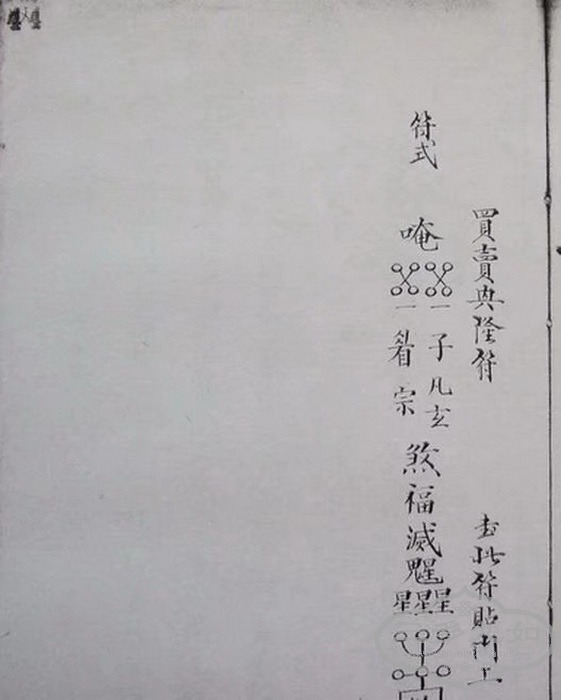 44
買賣興隆符 書此符貼門上
符式
唵
一 一
子凡玄
宗
煞福滅
星星星